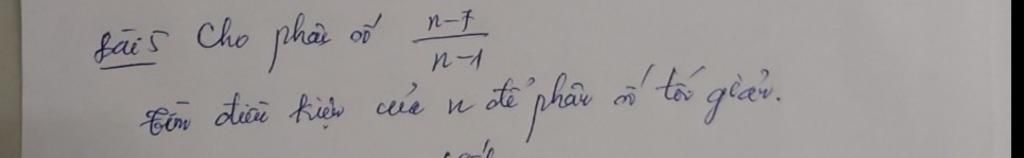 Bài 5 Cho phân số n-7/n-1
Tìm điều kiện của n để phân số tối giản.